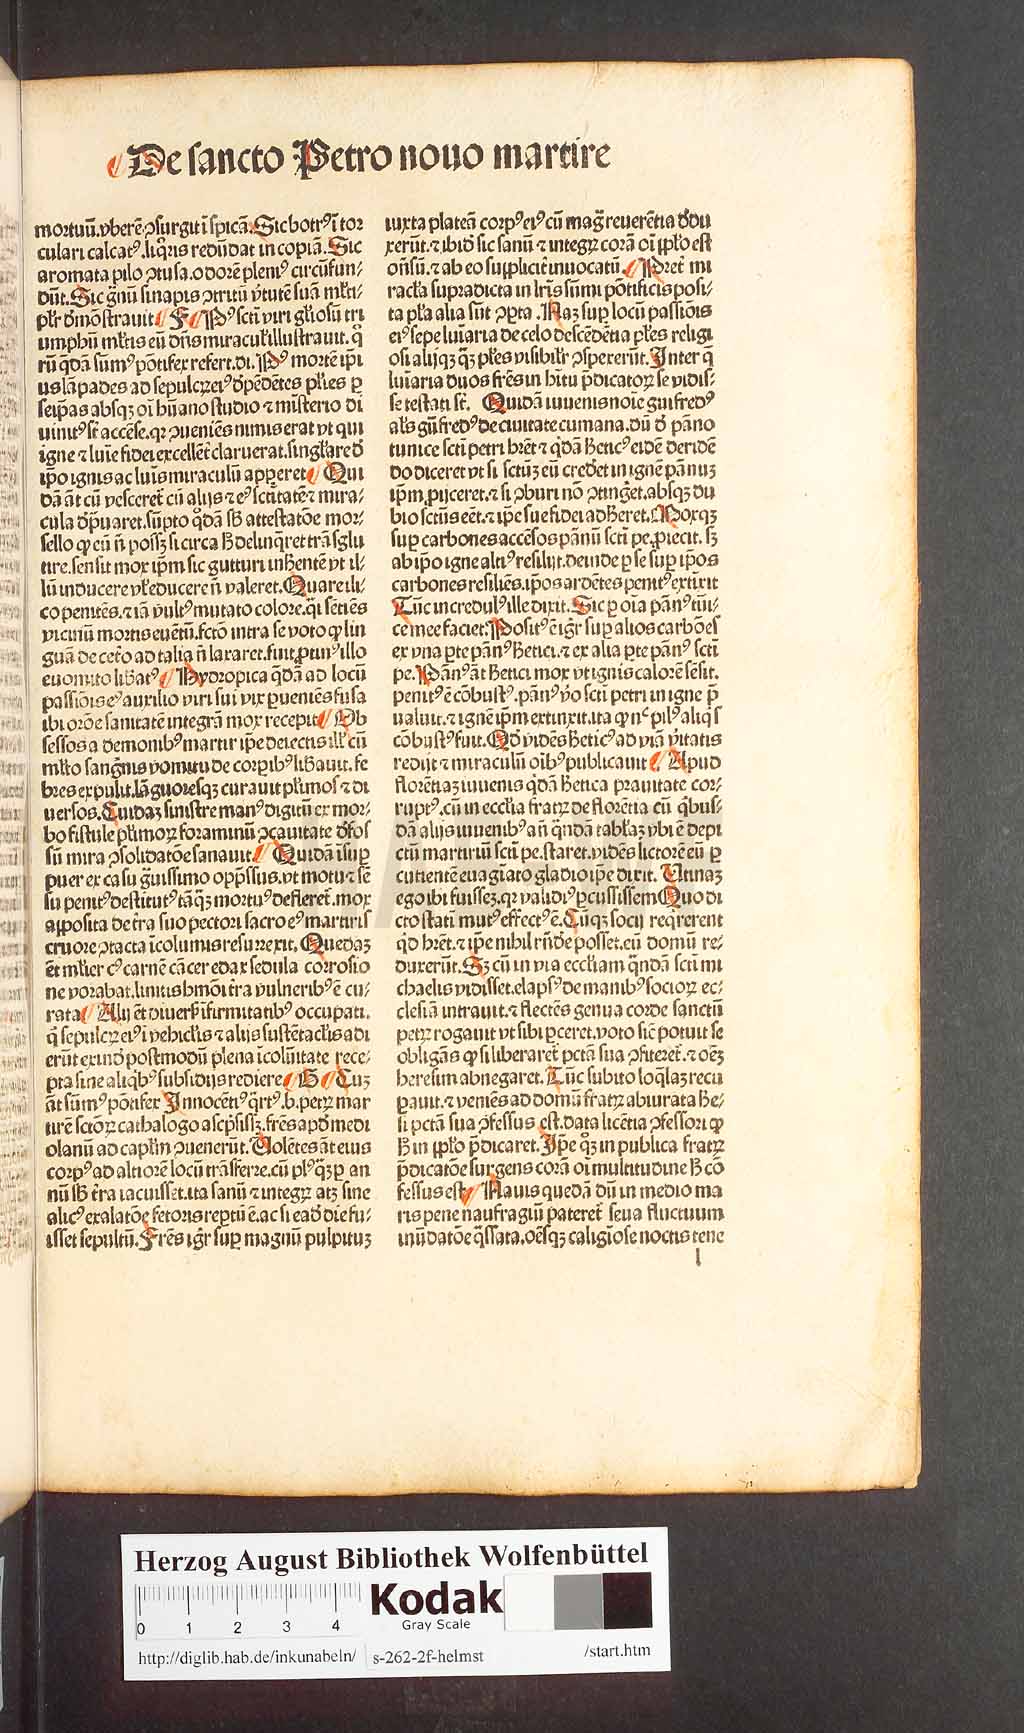 De sancto Petro nouo martire
mortuū. vberē ꝯsurgit ī spicā. Sic botrꝰ ī tor
culari calcatꝰ. liq̊ris redūdat in copiā. Sic
aromata pilo ꝯtusa. odorē pleniꝰ circūfun⸗
dūt. Sic g̃nū sinapis ꝯtritū v̓tutē suā ml̓ti⸗
pl̓r d̓mōstrauit F Pꝰ sctī viri gl̓iosū tri
umphū ml̓tis eū dn̄s miracul̓ illustrauit. q̊
rū q̄dā sūmꝰ pōtifex refert. di. Pꝰ mortē ip̄i
us lāpades ad sepulcꝝ eiꝰ d̓pēdētes pl̓ies ꝑ
seip̄as absqꝫ oī hūano studio ⁊ mīsterio di
uinitꝰ st̄ accēse. qꝛ ꝯueniēs nimis erat vt qui
igne ⁊ luīe fidei excellēt̓ claruerat. singl̓are d̓
ip̄o ignis ac luīs miraculū apperet Qui
dā āt cū vesceret̓ cū alijs ⁊ eꝰ sctītatē ⁊ mira⸗
cula d̓p̄uaret. sūpto q̊dā sb̓ attestatōe mor⸗
sello ꝙ eū n̄ possꝫ si circa h̓ delinq̄ret trās̄glu
tire. sensit mox ip̄m sic gutturi inherētē vt il⸗
lū inducere vl̓ educere n̄ valeret. Quare ili⸗
co penitēs. ⁊ iā vultꝰ mutato colore. q̄i sētiēs
vicinū mortis euētū. fctō intra se voto ꝙ lin
guā de cet̓o ad talia n̄ laxaret. fuit ꝓtinꝰ illo
euomito lib̓atꝰ Hydropica q̄dā ad locū
passiōis eꝰ auxilio viri sui vix ꝑueniēs fusa
ibi orōe sanitatē integrā mox recepit Ob
sessos a demonibꝰ martir ip̄e deiectis ill̓ cū
ml̓to sang̓nis vomitu de corꝑibꝰ lib̓auit. fe
bres expulit. lāguoresqꝫ curauit pl̓imos ⁊ di
uersos. Cuidaꝫ sinistre manꝰ digitū ex mor⸗
bo fistule pl̓imoꝝ foraminū ꝯcauitate d̓fos
sū mira ꝯsolidatōe sanauit Quidā īsup̱
puer ex casu g̓uissimo opp̄ssus. vt motu ⁊ sē
su penitꝰ destitutꝰ tāq̄ꝫ mortuꝰ defleret̓. mox
apposita de t̓ra suo pectori sacro eꝰ martiris
cruore ꝯtacta īcolumis resurrexit. Quedaꝫ
ēt ml̓ier cꝰ carnē cācer edax sedula corrosio
ne vorabat. linitis hmōi t̓ra vulneribꝰ ē cu⸗
rata Alij ēt diuers̓ īfirmitatibꝰ occupati.
q̄ sepulcꝝ eiꝰ ī vehicl̓is ⁊ alijs sustētacl̓is adi
erūt exind̓ postmodū plena īcolūitate rece⸗
pta sine aliq̄bꝰ subsidijs rediere G Cuꝫ
āt sūmꝰ pōtifex Innocētiꝰ q̄rtꝰ. b. petꝝ mar
tirē sctōꝝ cathalogo ascp̄sissꝫ. fr̄es apd̓ medi
olanū ad capl̓m ꝯuenerūt. Volētes āt eius
corpꝰ ad altiorē locū trāsferre. cū plꝰ q̄ꝫ ꝑ an
nū sb̓ t̓ra iacuisset. ita sanū ⁊ integꝝ atqꝫ sine
alicꝰ exalatōe fetoris reptū ē. ac si ead̓ die fu⸗
isset sepultū. Fr̄es ig̓r sup̱ magnū pulpituꝫ
iuxta plateā corpꝰ eiꝰ cū mag̃ reuerētia d̓du
xerūt. ⁊ ibid̓ sic sanū ⁊ integꝝ corā oī pp̄l̓o est
on̄sū. ⁊ ab eo suppliciter inuocatū. Pret̓ mi
racl̓a supradicta in lr̄is sūmi pōtificis posi⸗
ta pl̓a alia sūt ꝯꝑta. Naꝫ sup̱ locū passiōis
eiꝰ sepe luīaria de celo descēdētia pl̓es religi
osi alijqꝫ q̄ꝫ pl̓es visibil̓r ꝯspexerūt. Inter q̄
luīaria duos fr̄es in hītu p̄dicatoꝝ se vidis⸗
se testati st̄. Quidā iuuenis noīe guifredꝰ
al̓s gūfredꝰ de ciuitate cumana. dū d̓ pāno
tunice sctī petri hr̄et ⁊ q̄dā heticꝰ eidē deridē
do diceret vt si sctū eū credēt in ignē pānuꝫ
ip̄m ꝓijceret. ⁊ si ꝯburi nō ꝯting̓et. absqꝫ du
bio sctūs eēt. ⁊ ip̄e sue fidei adhēret. Moxqꝫ
sup̱ carbones accēsos pānū sctī pe. ꝓiecit. sꝫ
ab ip̄o igne altiꝰ resilijt. deinde ꝑ se sup̱ ip̄os
carbones resiliēs. ip̄os ardētes penitꝰ extīxit
Tūc incredulꝰ ille dixit. Sic ꝑ oīa pānꝰ tūi⸗
ce mee faciet. Positꝰ ē ig̓r sup̱ alios carbōes
ex vna ꝑte pānꝰ hetici. ⁊ ex alia ꝑte pānꝰ sctī
pe. Pānꝰ āt hetici mox vt ignis calorē sēsit.
penitꝰ ē cōbustꝰ. pānꝰ v̓o sctī petri in igne p̄
ualuit. ⁊ ignē ip̄m extinxit. ita ꝙ nec pilꝰ aliqs
cōbustꝰ fuit. Qd̓ vidēs heticꝰ ad viā v̓itatis
redijt ⁊ miraculū oībꝰ publicauit Apud
florētiaꝫ iuuenis q̄dā hetica prauitate cor⸗
ruptꝰ. cū in ecclīa fratꝝ de florētia cū q̄bus⸗
dā alijs iuuenibꝰ añ q̄ndā tabl̓aꝫ vbi ē depi
ctū martiriū sctī pe. staret. vidēs lictorē eū ꝑ
cutientē euagīato gladio ip̄e dixit. Utinaꝫ
ego ibi fuissē. qꝛ validiꝰ ꝑcussissem Quo di
cto stati mutꝰ effectꝰ ē. Cūqꝫ socij req̄rerent
qd̓ hr̄et. ⁊ ip̄e nihil rn̄de posset. eū domū re⸗
duxerūt. Sꝫ cū in via ecclīam q̄ndā sctī mi
chaelis vidisset. elapsꝰ de manibꝰ socioꝝ ec⸗
clesiā intrauit. ⁊ flectēs genua corde sanctū
petꝝ rogauit vt sibi ꝑceret. voto sic̄ potuit se
obligās ꝙ si liberaret̓ pctā sua ꝯfiteret̓. ⁊ oēꝫ
heresim abnegaret. Tūc subito loq̄laꝫ recu
perauit. ⁊ veniēs ad domū fratꝝ abiurata he⸗
si pctā sua ꝯfessus est. data licētia ꝯfessori ꝙ
h̓ in pp̄l̓o p̄dicaret. Ip̄e qꝫ in publica fratꝝ
p̄dicatōe surgens corā oī multitudine h̓ cō
fessus est Nauis quedā dū in medio ma
ris pene naufragiū pateret̓ seua fluctuum
inūdatōe q̄ssata. oēsqꝫ caligiose noctis tene
l
Herzog August Bibliothek Wolfenbüttel
0 1 2 3 4
Kodak
Gray Scale
http://diglib.hab.de/inkunabeln/ s-262-2f-helmst /start.htm